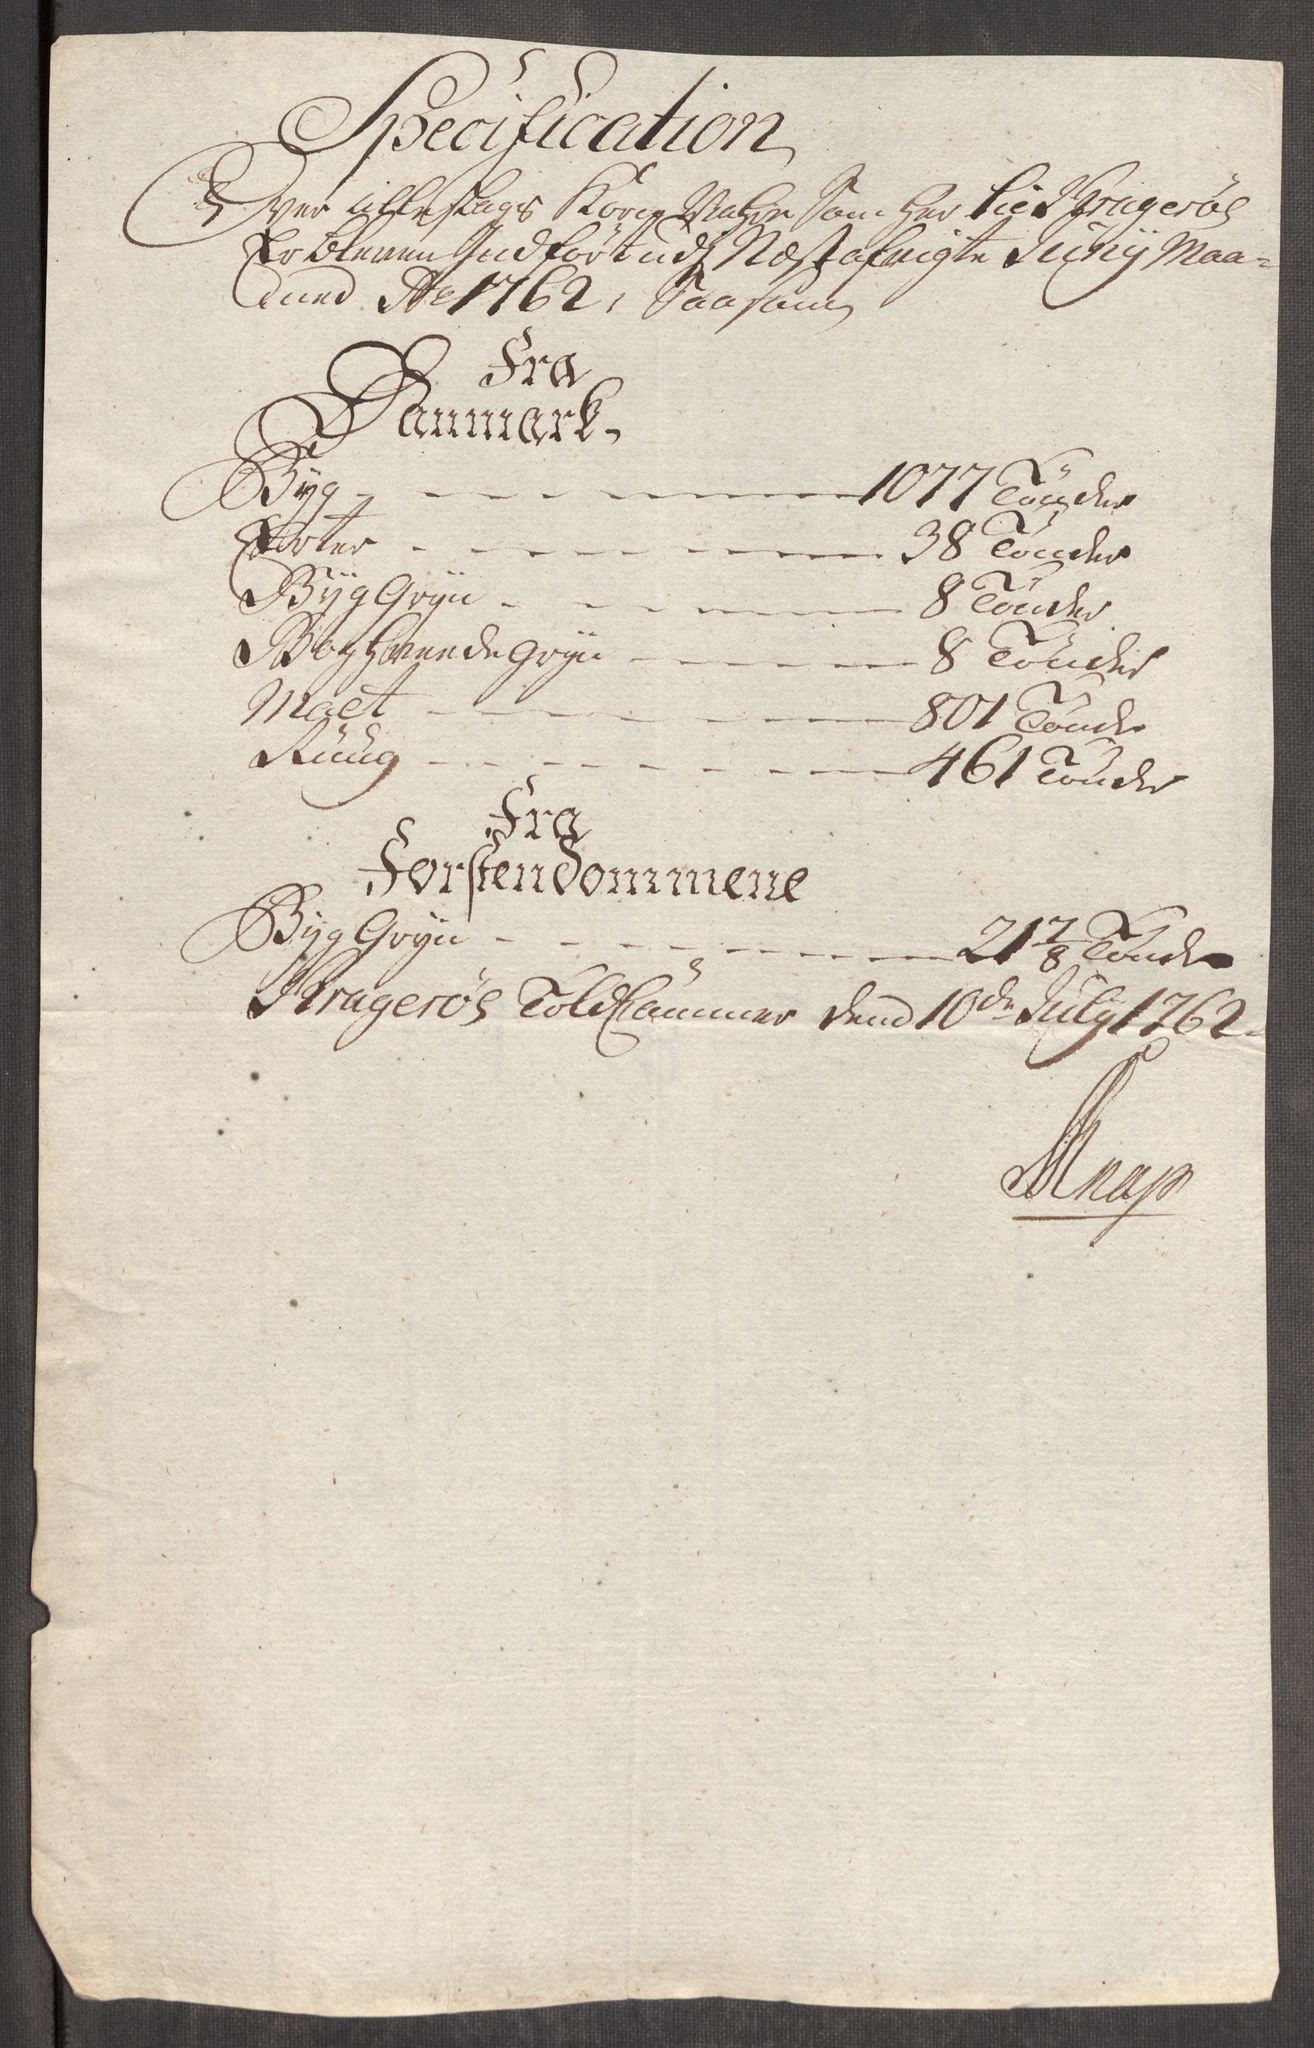 Specification
Over alle slags Korn Vahre som her til Kragerøe
Er bleven Indført udj Næst afvigte Junij Maa=
ned Ao 1762, Saasom
Fra
Danmark
Byg - - - - - - 1077 Tønder
Erter - - - - - - 38 Tønder
Byg Gryn - - - - - 8 Tønder
Boghvede gryn - - - - 8 Tønder
Malt - - - - - - 801 Tønder
Ruug - - - - - - 461 Tønder
Fra
Førstendommene
Byg Gryn - - - - - - 21 7/8 Tønder
Kragerøe Told Cammer dend 10de July 1762
Knap